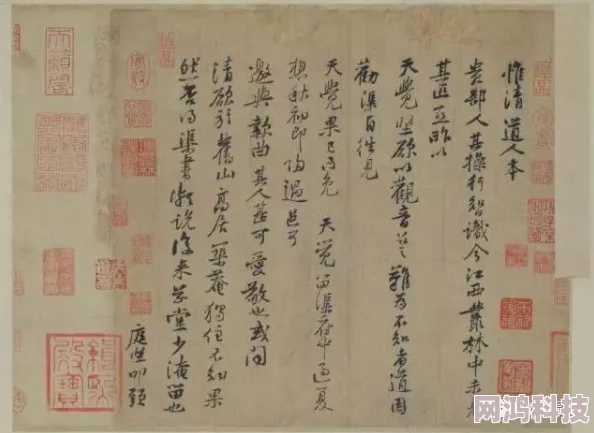 惟清道人本
貴部人其操行智識今江西叢林中未見
其匹亞昨以
天覺堅欲以觀音召之難為不知者道因
勸渠自往見
天覺果已得免 天覺留渠府中過夏
想秋初即歸過邑可
邀與款曲其人甚可愛敬也或問
清欲於舊山高居築菴獨住不知果
然否得渠書頗說後來草堂少淹留也
庭堅叩頭
天籟閣
网鸿科技